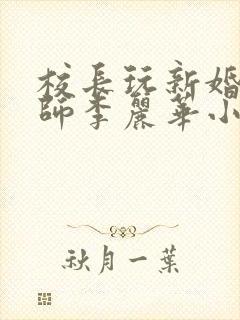 校長玩新婚
師李麗華小
秋月一葉